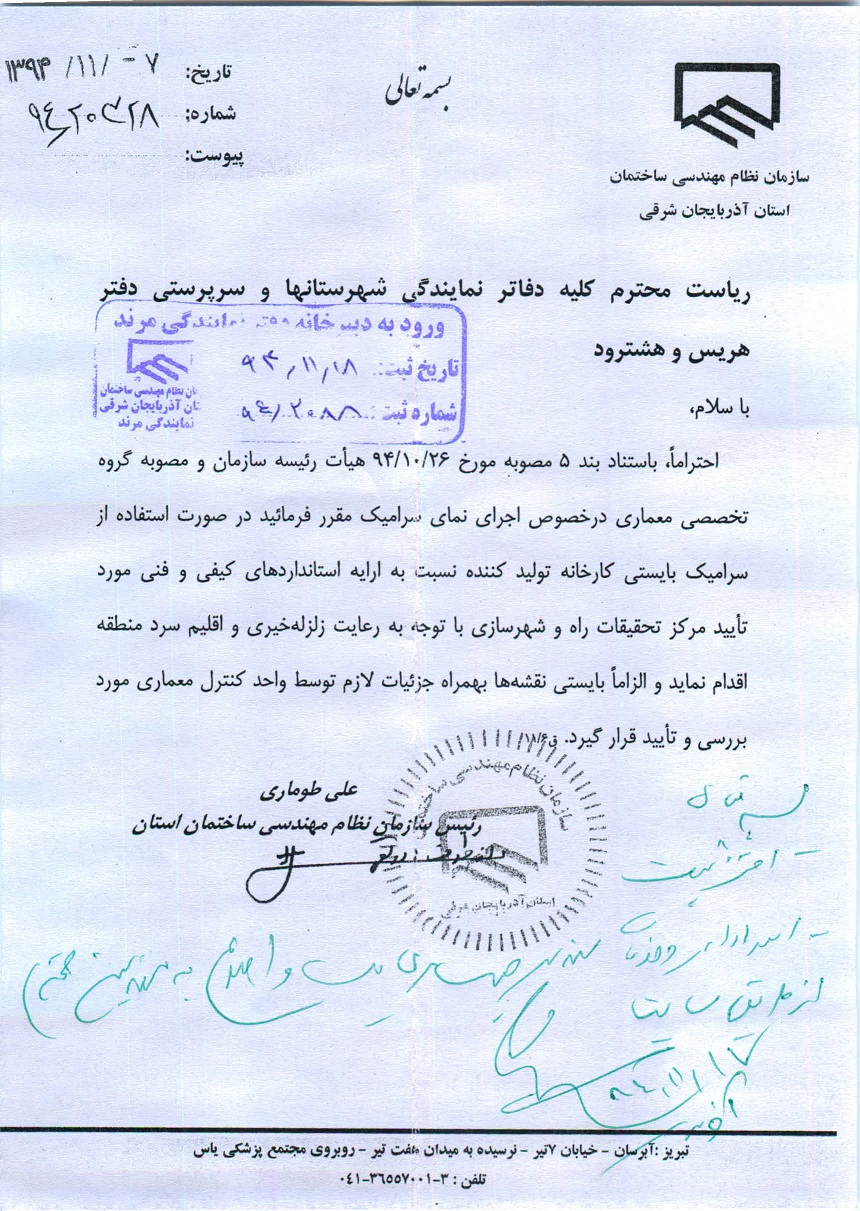 بسمه تعالی
سازمان نظام مهندسی ساختمان
استان آذربایجان شرقی
تاریخ: ۱۳۹۴/۱۱/-۷
شماره:
پیوست:
ریاست محترم کلیه دفاتر نمایندگی شهرستانها و سرپرستی دفتر
هریس و هشترود
ورود به دبیرخانه دفتر نمایندگی مرند
تاریخ ثبت: ۹۴/۱۱/۱۸
شماره ثبت:
سازمان نظام مهندسی ساختمان
استان آذربایجان شرقی
نمایندگی مرند
با سلام،
احتراماً، باستناد بند ۵ مصوبه مورخ ۹۴/۱۰/۲۶ هیأت رئیسه سازمان و مصوبه گروه
تخصصی معماری درخصوص اجرای نمای سرامیک مقرر فرمائید در صورت استفاده از
سرامیک بایستی کارخانه تولید کننده نسبت به ارایه استانداردهای کیفی و فنی مورد
تأیید مرکز تحقیقات راه و شهرسازی با توجه به رعایت زلزله‌خیری و اقلیم سرد منطقه
اقدام نماید و الزاماً بایستی نقشه‌ها بهمراه جزئیات لازم توسط واحد کنترل معماری مورد
بررسی و تأیید قرار گیرد.
علی طوماری
رئیس سازمان نظام مهندسی ساختمان استان
سازمان نظام مهندسی ساختمان
استان آذربایجان شرقی
از طریق سایت
تبریز :آبرسان - خیابان ۷تیر - نرسیده به میدان هفت تیر - روبروی مجتمع پزشکی یاس
تلفن : ۳-۳۶۵۵۷۰۰۱-۰۴۱